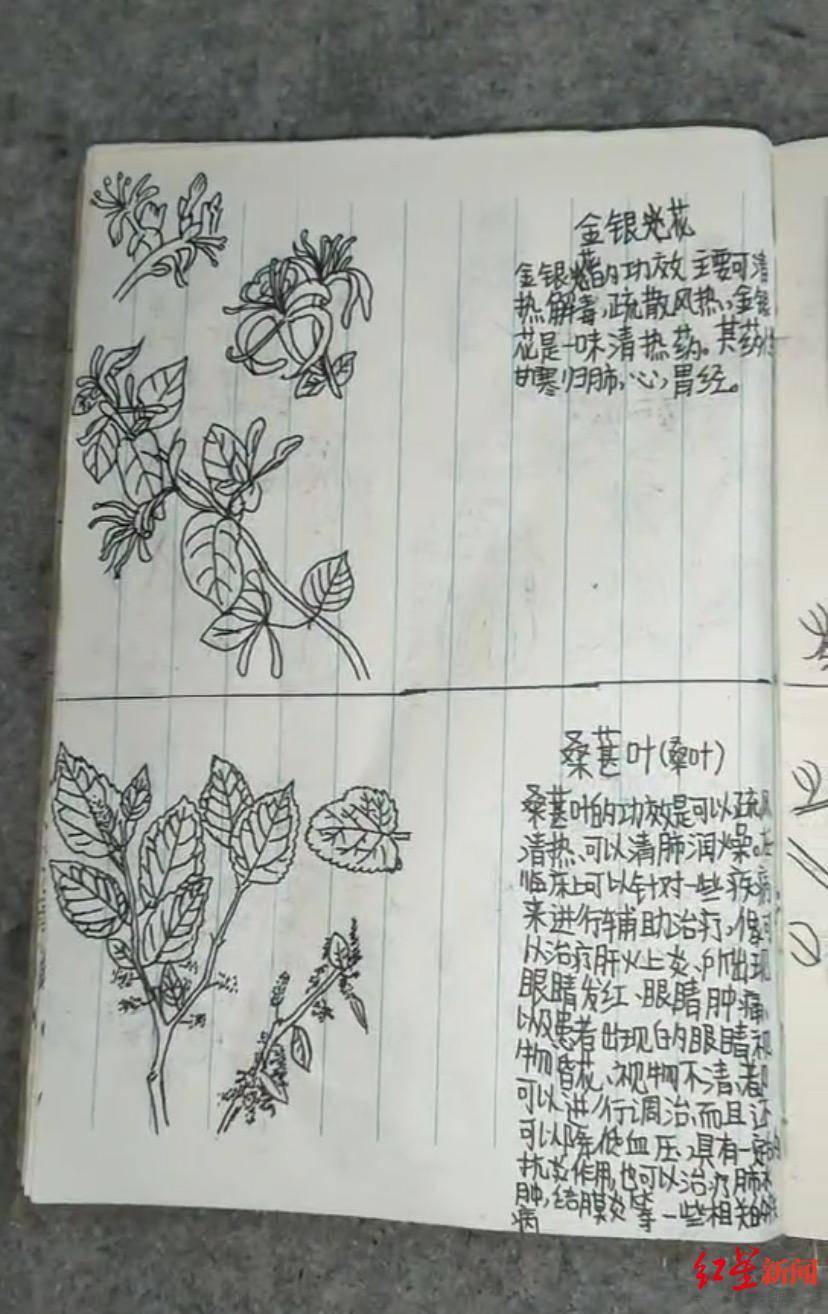 金银花
金银花的功效主要可清
热解毒,疏散风热,金银
花是一味清热药。其药性
甘寒归肺,心,胃经。
桑葚叶(桑叶)
桑葚叶的功效是可以疏风
清热、可以清肺润燥。在
临床上可以针对一些疾病
来进行辅助治疗,像可
以治疗肝火上炎、所出现
眼睛发红、眼睛肿痛、
以及患者出现的眼睛视
物昏花、视物不清,都
可以进行调治,而且还
可以降低血压,具有一定的
抗炎作用,也可以治疗肺水
肿,结膜炎等一些相关的
病
红星新闻